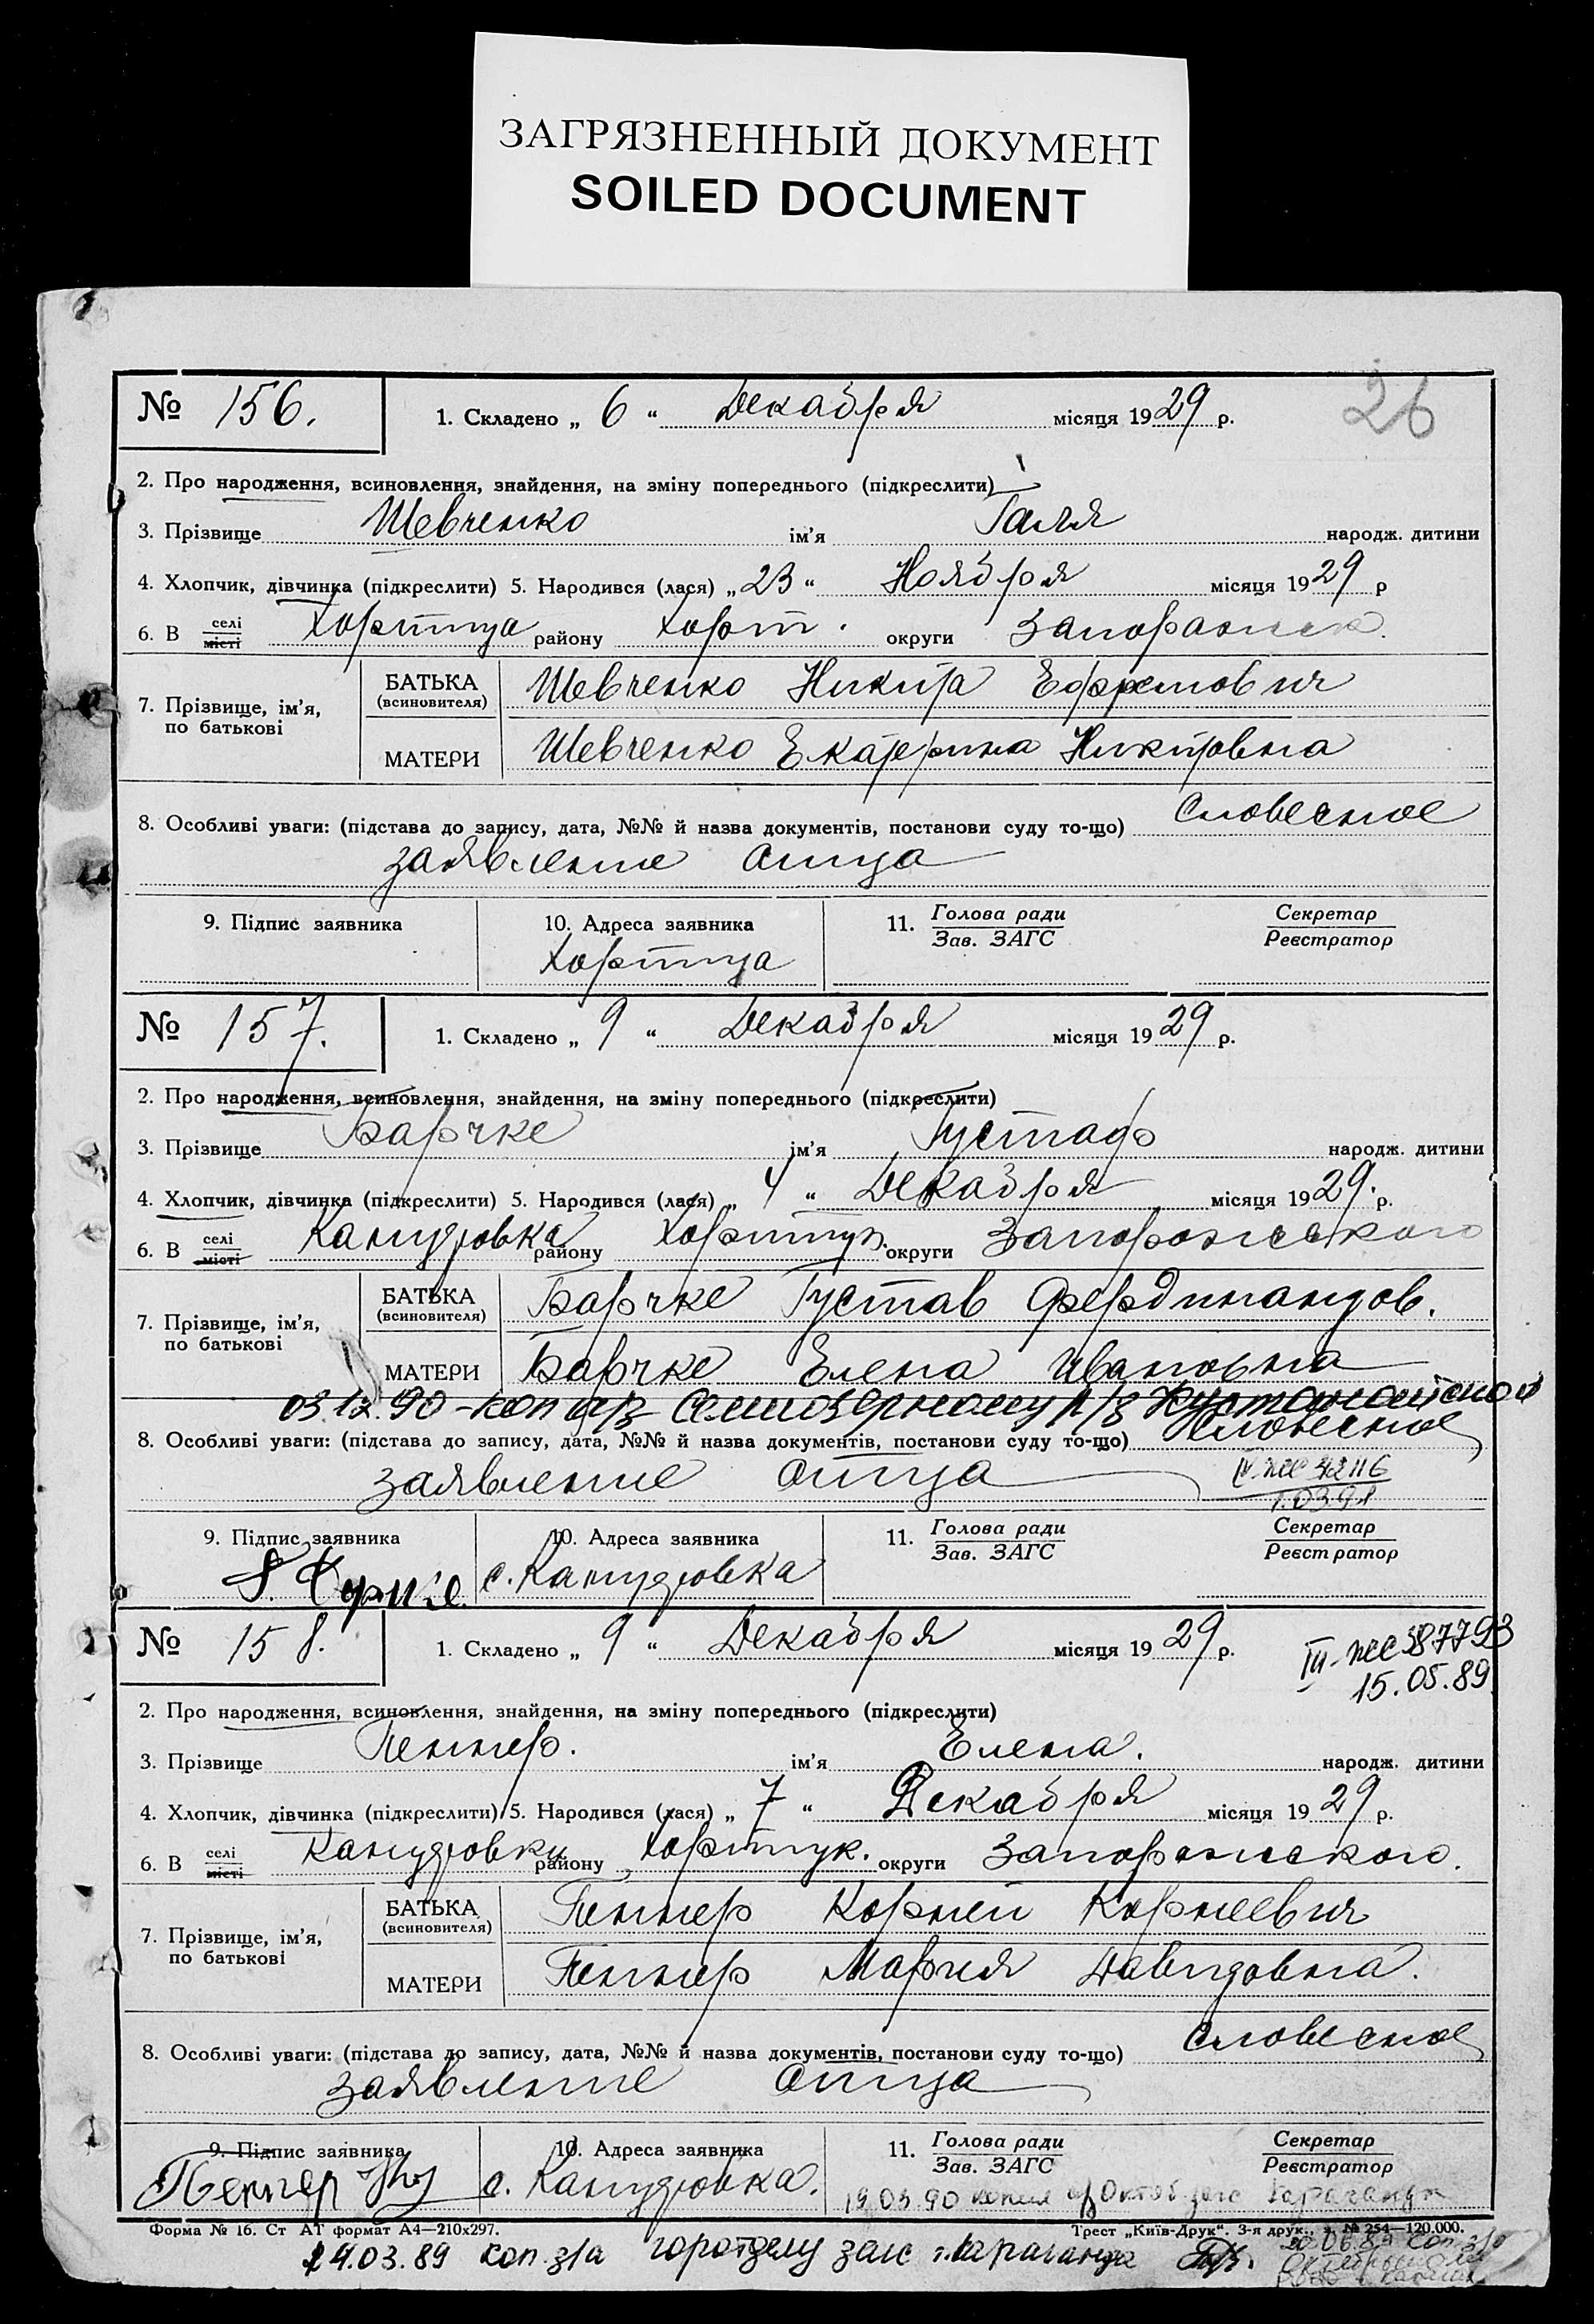 ЗАГРЯЗНЕННЫЙ ДОКУМЕНТ
SOILED DOCUMENT
26
№ 156. 1. Складено „ 6 “ Декабря місяця 1929 р.
2. Про народження, всиновлення, знайдення, на зміну попереднього (підкреслити)
3. Прізвище Шевченко ім'я Галя народж. дитини
4. Хлопчик, дівчинка (підкреслити) 5. Народився (лася) „ 23 “ Ноября місяця 1929 р
6. В селі місті Хортица району Хорт. округи Запорожск.
7. Прізвище, ім'я, по батькові
БАТЬКА (всиновителя) Шевченко Никита Ефремович
МАТЕРИ Шевченко Екатерина Никитовна
8. Особливі уваги: (підстава до запису, дата, №№ й назва документів, постанови суду то-що) Словесное
заявление отца
9. Підпис заявника 10. Адреса заявника 11. Голова ради Зав. ЗАГС Секретар Реєстратор
Хортица
№ 157. 1. Складено „ 9 “ Декабря місяця 1929 р.
2. Про народження, всиновлення, знайдення, на зміну попереднього (підкреслити)
3. Прізвище Барчке ім'я Густаф народж. дитини
4. Хлопчик, дівчинка (підкреслити) 5. Народився (лася) „ 4 “ Декабря місяця 1929. р.
6. В селі місті Кандровка району Хортицк. округи Запорожского
7. Прізвище, ім'я, по батькові
БАТЬКА (всиновителя) Барчке Густав Фердинандов.
МАТЕРИ Барчке Елена Ивановна
03.12.90 - коп Семиозерному р/з Кустанайской
8. Особливі уваги: (підстава до запису, дата, №№ й назва документів, постанови суду то-що) Словесное
заявление отца
1.03.91
9. Підпис заявника 10. Адреса заявника 11. Голова ради Зав. ЗАГС Секретар Реєстратор
с. Кандровка
№ 158. 1. Складено „ 9 “ Декабря місяця 1929 р.
III-ЖС 387793
15.05.89
2. Про народження, всиновлення, знайдення, на зміну попереднього (підкреслити)
3. Прізвище Пеннер. ім'я Елена. народж. дитини
4. Хлопчик, дівчинка (підкреслити) 5. Народився (лася) „ 7 “ Декабря місяця 1929 р.
6. В селі місті Кандровку району Хортицк. округи Запорожского.
7. Прізвище, ім'я, по батькові
БАТЬКА (всиновителя) Пеннер Корней Корнеевич
МАТЕРИ Пеннер Мария Давидовна.
8. Особливі уваги: (підстава до запису, дата, №№ й назва документів, постанови суду то-що) Словесное
заявление отца
9. Підпис заявника 10. Адреса заявника 11. Голова ради Зав. ЗАГС Секретар Реєстратор
Пеннер с. Кандровка. 19.03.90 копия Октяб загс Караганды
Форма № 16. Ст АТ формат А4—210х297. Трест „Київ-Друк“. 3-я друк., з. № 254—120.000.
24.03.89 коп з/а горотделу загс г. Караганда
20.06.89 коп з/а